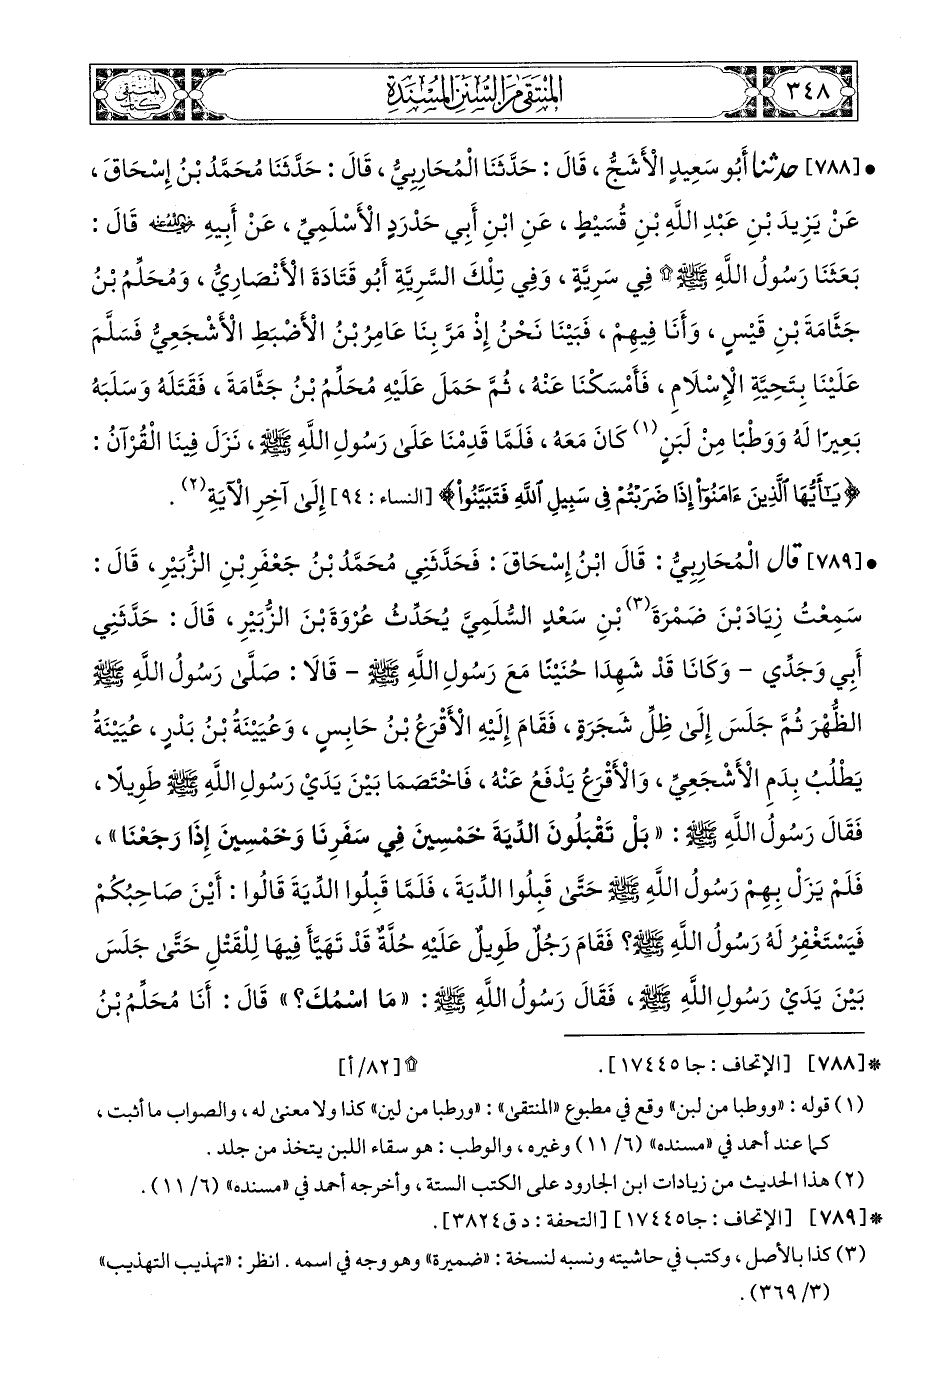 ٣٤٨ المنتقى من السنن المسندة كتاب المنتقى
• [٧٨٨] حدثنا أَبُو سَعِيدٍ الْأَشَجُّ، قَالَ: حَدَّثَنَا الْمُحَارِبِيُّ، قَالَ: حَدَّثَنَا مُحَمَّدُ بْنُ إِسْحَاقَ،
عَنْ يَزِيدَ بْنِ عَبْدِ اللَّهِ بْنِ قُسَيْطٍ، عَنِ ابْنِ أَبِي حَدْرَدٍ الْأَسْلَمِيِّ، عَنْ أَبِيهِ رضي الله عنه قَالَ:
بَعَثَنَا رَسُولُ اللَّهِ ﷺ ۩ فِي سَرِيَّةٍ، وَفِي تِلْكَ السَّرِيَّةِ أَبُو قَتَادَةَ الْأَنْصَارِيُّ، وَمُحَلِّمُ بْنُ
جَثَّامَةَ بْنِ قَيْسٍ، وَأَنَا فِيهِمْ، فَبَيْنَا نَحْنُ إِذْ مَرَّ بِنَا عَامِرُ بْنُ الْأَضْبَطِ الْأَشْجَعِيُّ فَسَلَّمَ
عَلَيْنَا بِتَحِيَّةِ الْإِسْلَامِ، فَأَمْسَكْنَا عَنْهُ، ثُمَّ حَمَلَ عَلَيْهِ مُحَلِّمُ بْنُ جَثَّامَةَ، فَقَتَلَهُ وَسَلَبَهُ
بَعِيرًا لَهُ وَوَطْبًا مِنْ لَبَنٍ(١) كَانَ مَعَهُ، فَلَمَّا قَدِمْنَا عَلَى رَسُولِ اللَّهِ ﷺ، نَزَلَ فِينَا الْقُرْآنُ:
﴿يَٰٓأَيُّهَا ٱلَّذِينَ ءَامَنُوٓا۟ إِذَا ضَرَبْتُمْ فِى سَبِيلِ ٱللَّهِ فَتَبَيَّنُوا۟﴾ [النساء: ٩٤] إِلَى آخِرِ الْآيَةِ(٢).
• [٧٨٩] قال الْمُحَارِبِيُّ: قَالَ ابْنُ إِسْحَاقَ: فَحَدَّثَنِي مُحَمَّدُ بْنُ جَعْفَرِ بْنِ الزُّبَيْرِ، قَالَ:
سَمِعْتُ زِيَادَ بْنَ ضَمْرَةَ(٣) بْنِ سَعْدٍ السُّلَمِيَّ يُحَدِّثُ عُرْوَةَ بْنَ الزُّبَيْرِ، قَالَ: حَدَّثَنِي
أَبِي وَجَدِّي - وَكَانَا قَدْ شَهِدَا حُنَيْنًا مَعَ رَسُولِ اللَّهِ ﷺ - قَالَا: صَلَّى رَسُولُ اللَّهِ ﷺ
الظُّهْرَ ثُمَّ جَلَسَ إِلَى ظِلِّ شَجَرَةٍ، فَقَامَ إِلَيْهِ الْأَقْرَعُ بْنُ حَابِسٍ، وَعُيَيْنَةُ بْنُ بَدْرٍ، عُيَيْنَةُ
يَطْلُبُ بِدَمِ الْأَشْجَعِيِّ، وَالْأَقْرَعُ يَدْفَعُ عَنْهُ، فَاخْتَصَمَا بَيْنَ يَدَيْ رَسُولِ اللَّهِ ﷺ طَوِيلًا،
فَقَالَ رَسُولُ اللَّهِ ﷺ: «بَلْ تَقْبَلُونَ الدِّيَةَ خَمْسِينَ فِي سَفَرِنَا وَخَمْسِينَ إِذَا رَجَعْنَا»،
فَلَمْ يَزَلْ بِهِمْ رَسُولُ اللَّهِ ﷺ حَتَّى قَبِلُوا الدِّيَةَ، فَلَمَّا قَبِلُوا الدِّيَةَ قَالُوا: أَيْنَ صَاحِبُكُمْ
فَيَسْتَغْفِرُ لَهُ رَسُولُ اللَّهِ ﷺ؟ فَقَامَ رَجُلٌ طَوِيلٌ عَلَيْهِ حُلَّةٌ قَدْ تَهَيَّأَ فِيهَا لِلْقَتْلِ حَتَّى جَلَسَ
بَيْنَ يَدَيْ رَسُولِ اللَّهِ ﷺ، فَقَالَ رَسُولُ اللَّهِ ﷺ: «مَا اسْمُكَ؟» قَالَ: أَنَا مُحَلِّمُ بْنُ
* [٧٨٨] [الإتحاف: جا ١٧٤٤٥]. ۩ [٨٢/ أ]
(١) قوله: «ووطبا من لبن» وقع في مطبوع «المنتقى»: «ورطبا من لين» كذا ولا معنى له، والصواب ما أثبت،
كما عند أحمد في «مسنده» (٦/ ١١) وغيره، والوطب: هو سقاء اللبن يتخذ من جلد.
(٢) هذا الحديث من زيادات ابن الجارود على الكتب الستة، وأخرجه أحمد في «مسنده» (٦/ ١١).
* [٧٨٩] [الإتحاف: جا ١٧٤٤٥] [التحفة: د ق ٣٨٢٤].
(٣) كذا بالأصل، وكتب في حاشيته ونسبه لنسخة: «ضميرة» وهو وجه في اسمه. انظر: «تهذيب التهذيب»
(٣/ ٣٦٩).